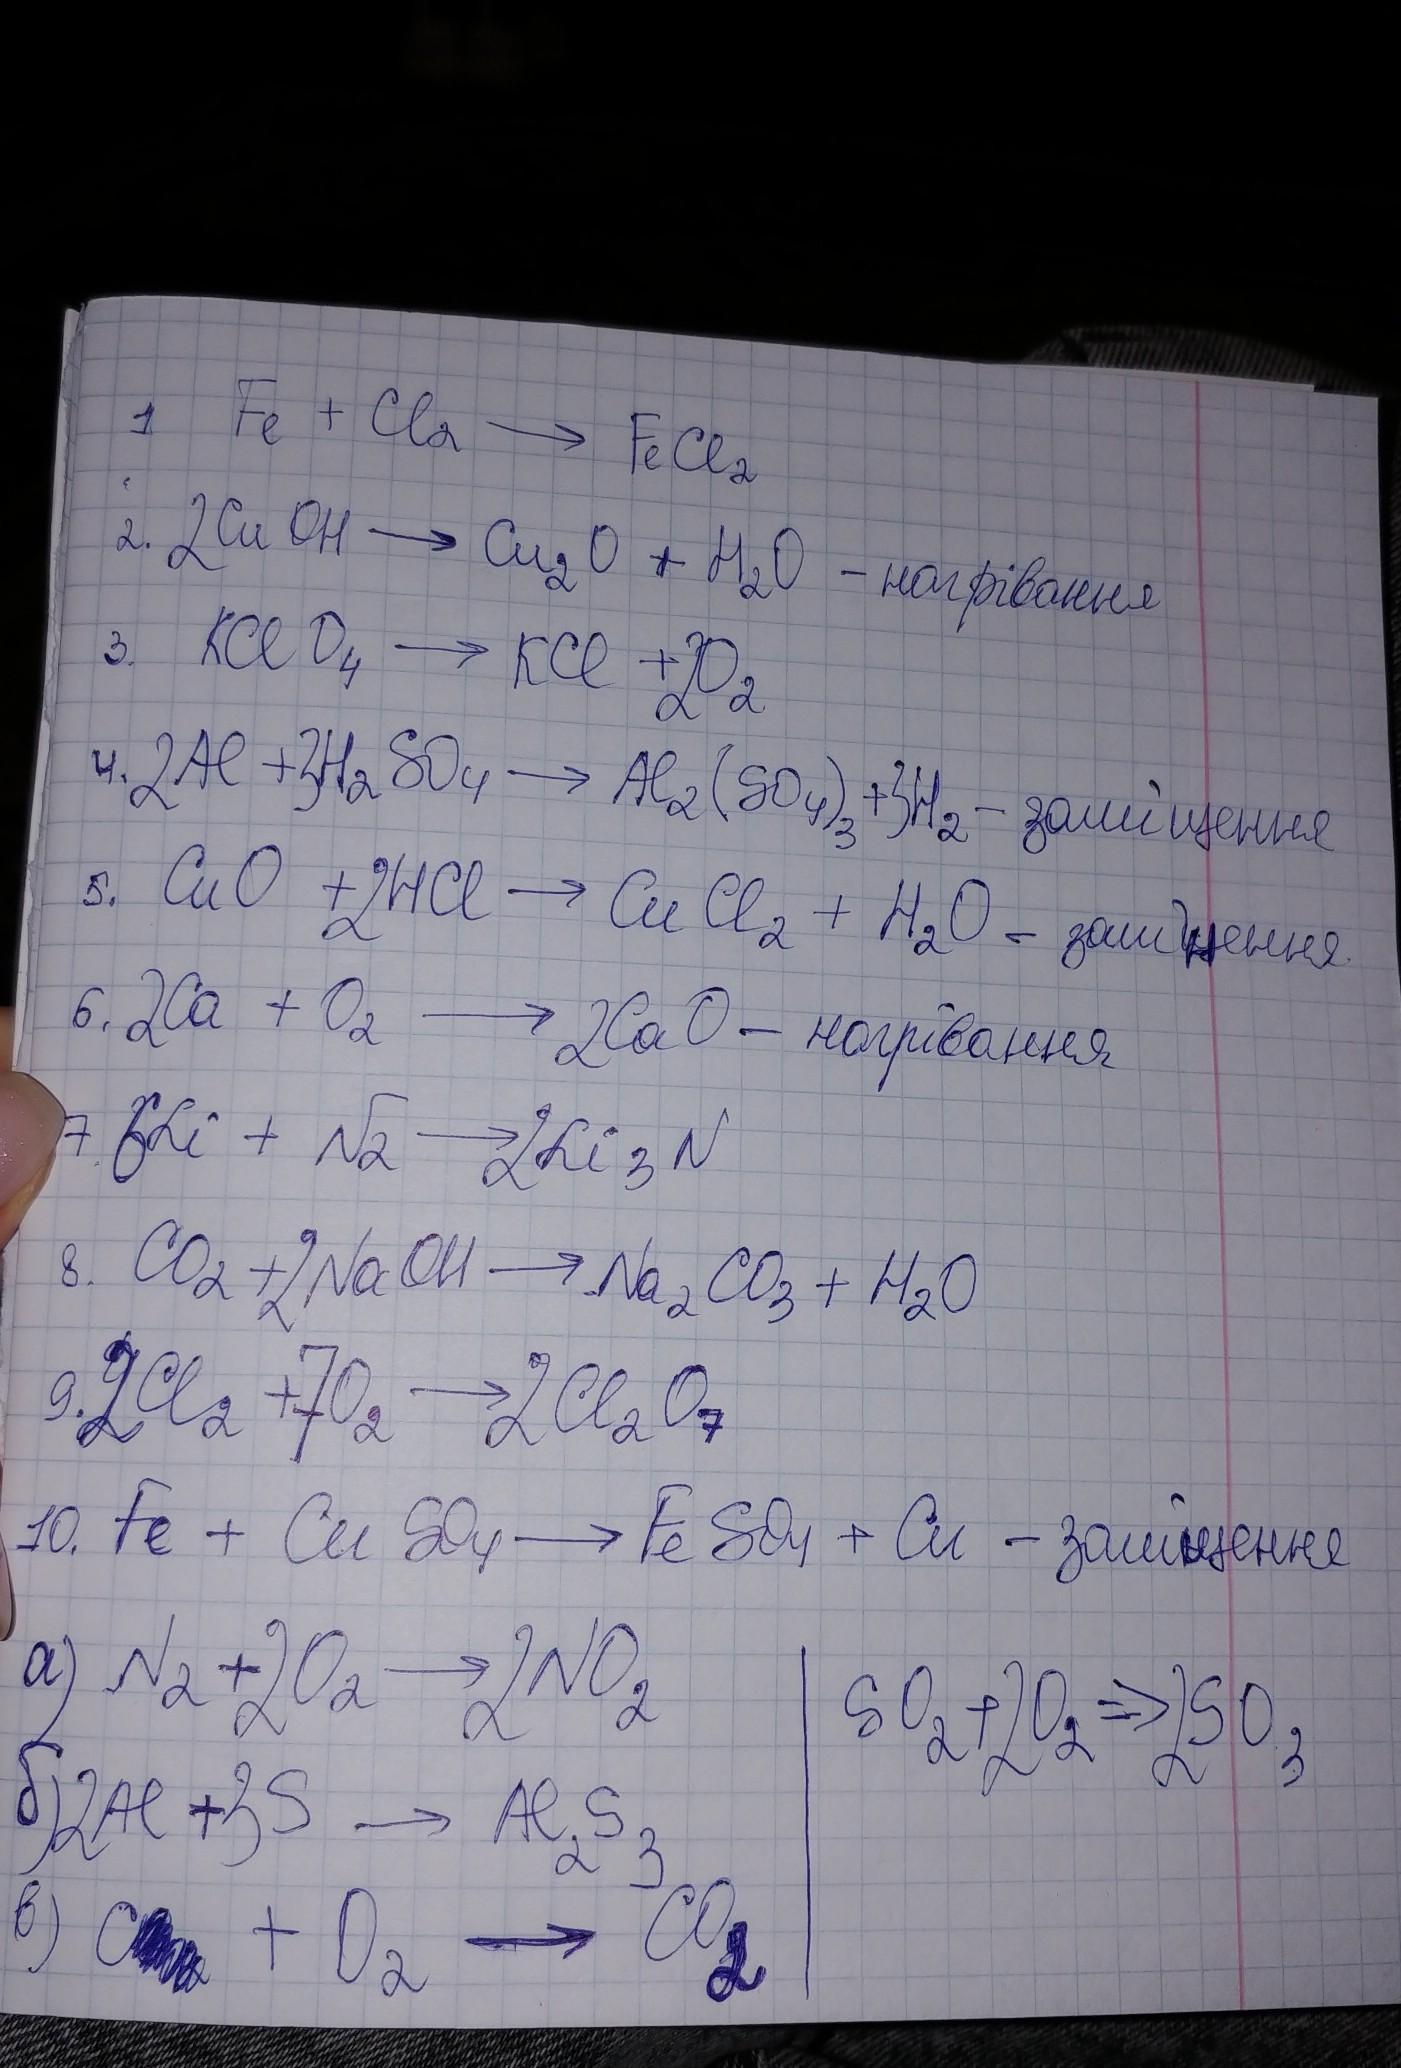 1 Fe + Cl₂ → FeCl₂
2. 2CuOH → Cu₂O + H₂O - нагрівання
3. KClO₄ → KCl + 2O₂
4. 2Al + 3H₂SO₄ → Al₂(SO₄)₃ + 3H₂ - заміщення
5. CuO + 2HCl → CuCl₂ + H₂O - заміщення.
6. 2Ca + O₂ → 2CaO - нагрівання
7. 6Li + N₂ → 2Li₃N
8. CO₂ + 2NaOH → Na₂CO₃ + H₂O
9. 2Cl₂ + 7O₂ → 2Cl₂O₇
10. Fe + CuSO₄ → FeSO₄ + Cu - заміщення
а) N₂ + 2O₂ → 2NO₂
б) 2Al + 3S → Al₂S₃
в) C + O₂ → CO₂
SO₂ + 2O₂ ⇒ 2SO₃